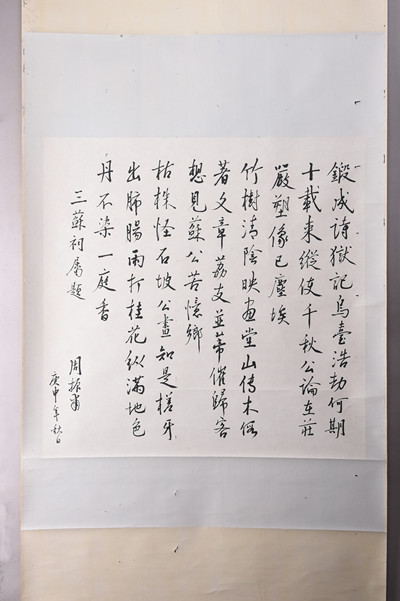 鍛成詩獄記烏臺浩劫何期
十載來縱使千秋公論在莊
嚴塑像已塵埃
竹樹清陰映畫堂山傳木假
著文章荔支並蒂催歸客
想見蘇公苦憶鄉
枯株怪石坡公畫知是槎牙
出肺腸雨打桂花紛滿地色
丹不染一庭香
三蘇祠屬題
周振甫
庚申年秋日